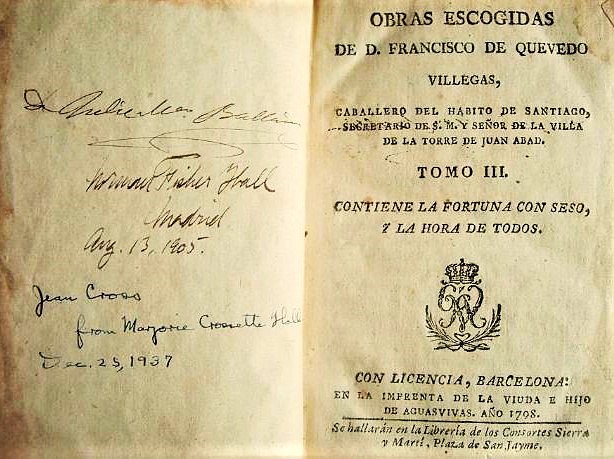 Norman Fisher Hall
Madrid
Aug. 13, 1905.
Jean Cross
from Marjorie Crossette Hall
Dec. 25, 1937
OBRAS ESCOGIDAS
DE D. FRANCISCO DE QUEVEDO
VILLEGAS,
CABALLERO DEL HABITO DE SANTIAGO,
SECRETARIO DE S. M. Y SEÑOR DE LA VILLA
DE LA TORRE DE JUAN ABAD.
TOMO III.
CONTIENE LA FORTUNA CON SESO,
Y LA HORA DE TODOS.
CON LICENCIA, BARCELONA:
EN LA IMPRENTA DE LA VIUDA E HIJO
DE AGUASVIVAS. AÑO 1798.
Se hallarán en la Librería de los Consortes Sierra
y Martí, Plaza de San Jayme.